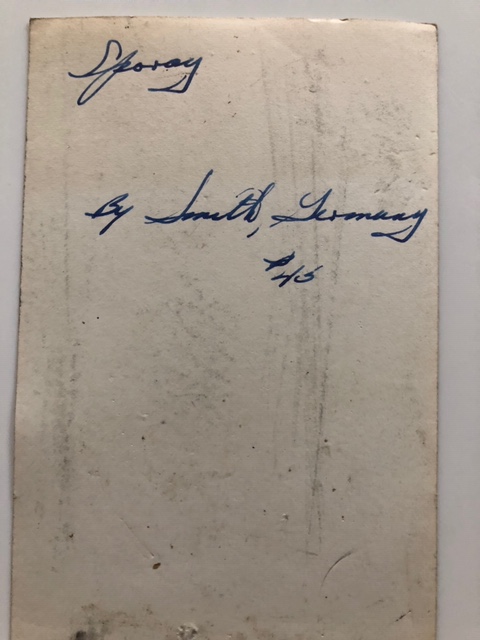 Sporay
By Smith, Germany
$45